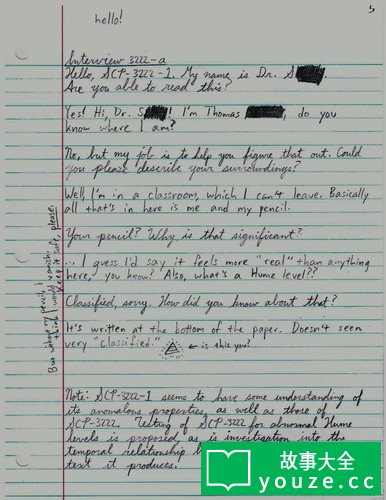 5
hello!
Interview 3222-a
Hello, SCP-3222-1. My name is Dr. S
Are you able to read this?
Yes! Hi, Dr. S ! I'm Thomas , do you
know where I am?
No, but my job is to help you figure that out. Could
you please describe your surroundings?
Well, I'm in a classroom, which I can't leave. Basically
all that's in here is me and my pencil.
Your pencil? Why is that significant?
... I guess I'd say it feels more "real" than anything
here, you know? Also, what's a Hume level??
Classified, sorry. How did you know about that?
It's written at the bottom of the paper. Doesn't seem
very "classified."
← is this you?
But without my pencil, I
think I would vanish.
keep it safe, please.
Note: SCP-3222-1 seems to have some understanding of
its anomalous properties, as well as those of
SCP-3222. Testing of SCP-3222 for abnormal Hume
levels is proposed, as is investigation into the
temporal relationship
text it produces.
故事大全
youze.cc